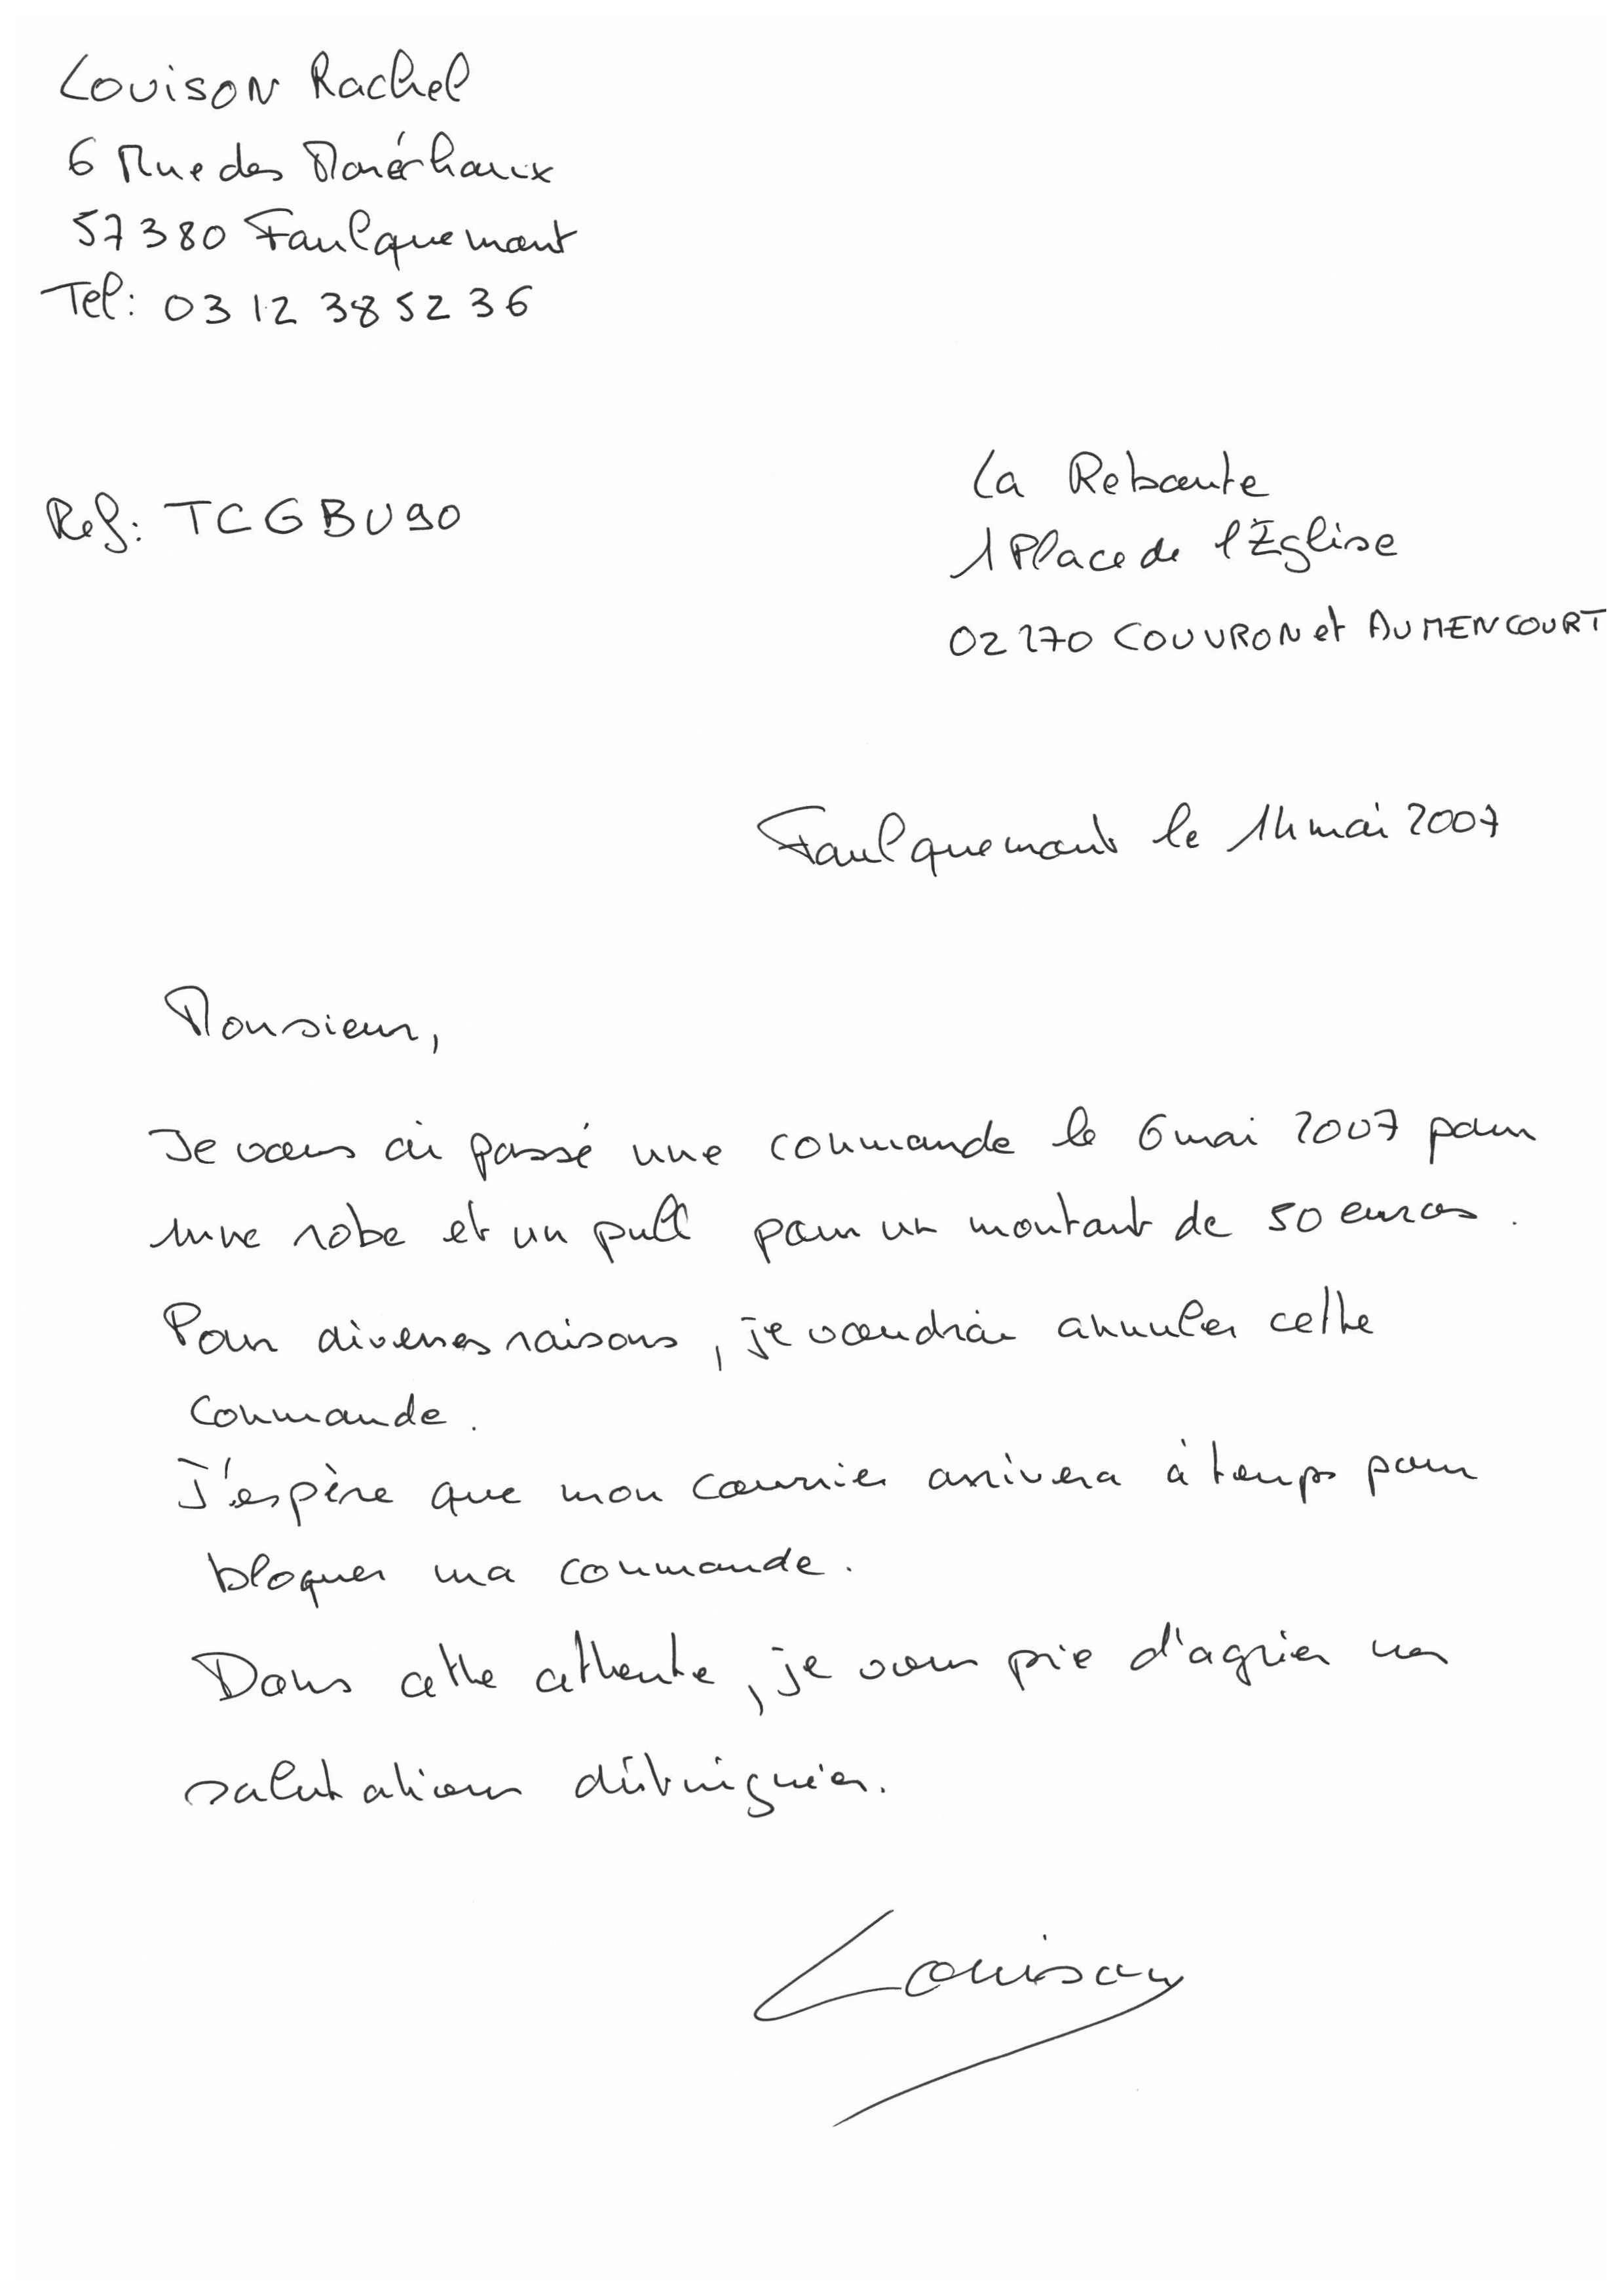 Louison Rachel
6 Rue des Maréchaux
57380 Faulquemont
Tel: 03 12 38 52 36
Ref: TCGBU90
La Reboute
1 Place de l'Eglise
02270 COUVRON et AUMENCOURT
Faulquemont le 14 mai 2007
Monsieur,
Je vous ai passé une commande le 6 mai 2007 pour
une robe et un pull pour un montant de 50 euros.
Pour diverses raisons, je voudrai annuler cette
commande.
J'espère que mon courrier arrivera à temps pour
bloquer ma commande.
Dans cette attente, je vous prie d'agréer mes
salutations distinguées.
Louison